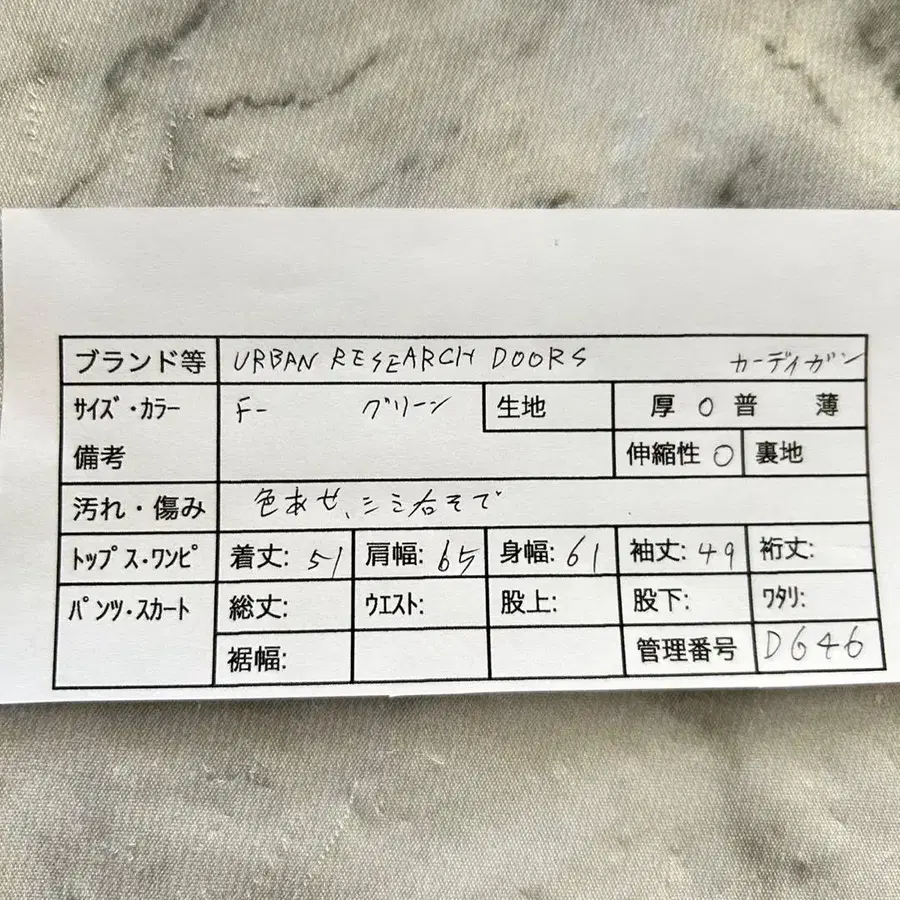 ブランド等 URBAN RESEARCH DOORS カーディガン
サイズ・カラー F- グリーン 生地 厚 ○ 普 薄
備考 伸縮性 ○ 裏地
汚れ・傷み 色あせ、シミ右そで
トップス・ワンピ 着丈: 51 肩幅: 65 身幅: 61 袖丈: 49 裄丈:
パンツ・スカート 総丈: ウエスト: 股上: 股下: ワタリ:
裾幅: 管理番号 DG46